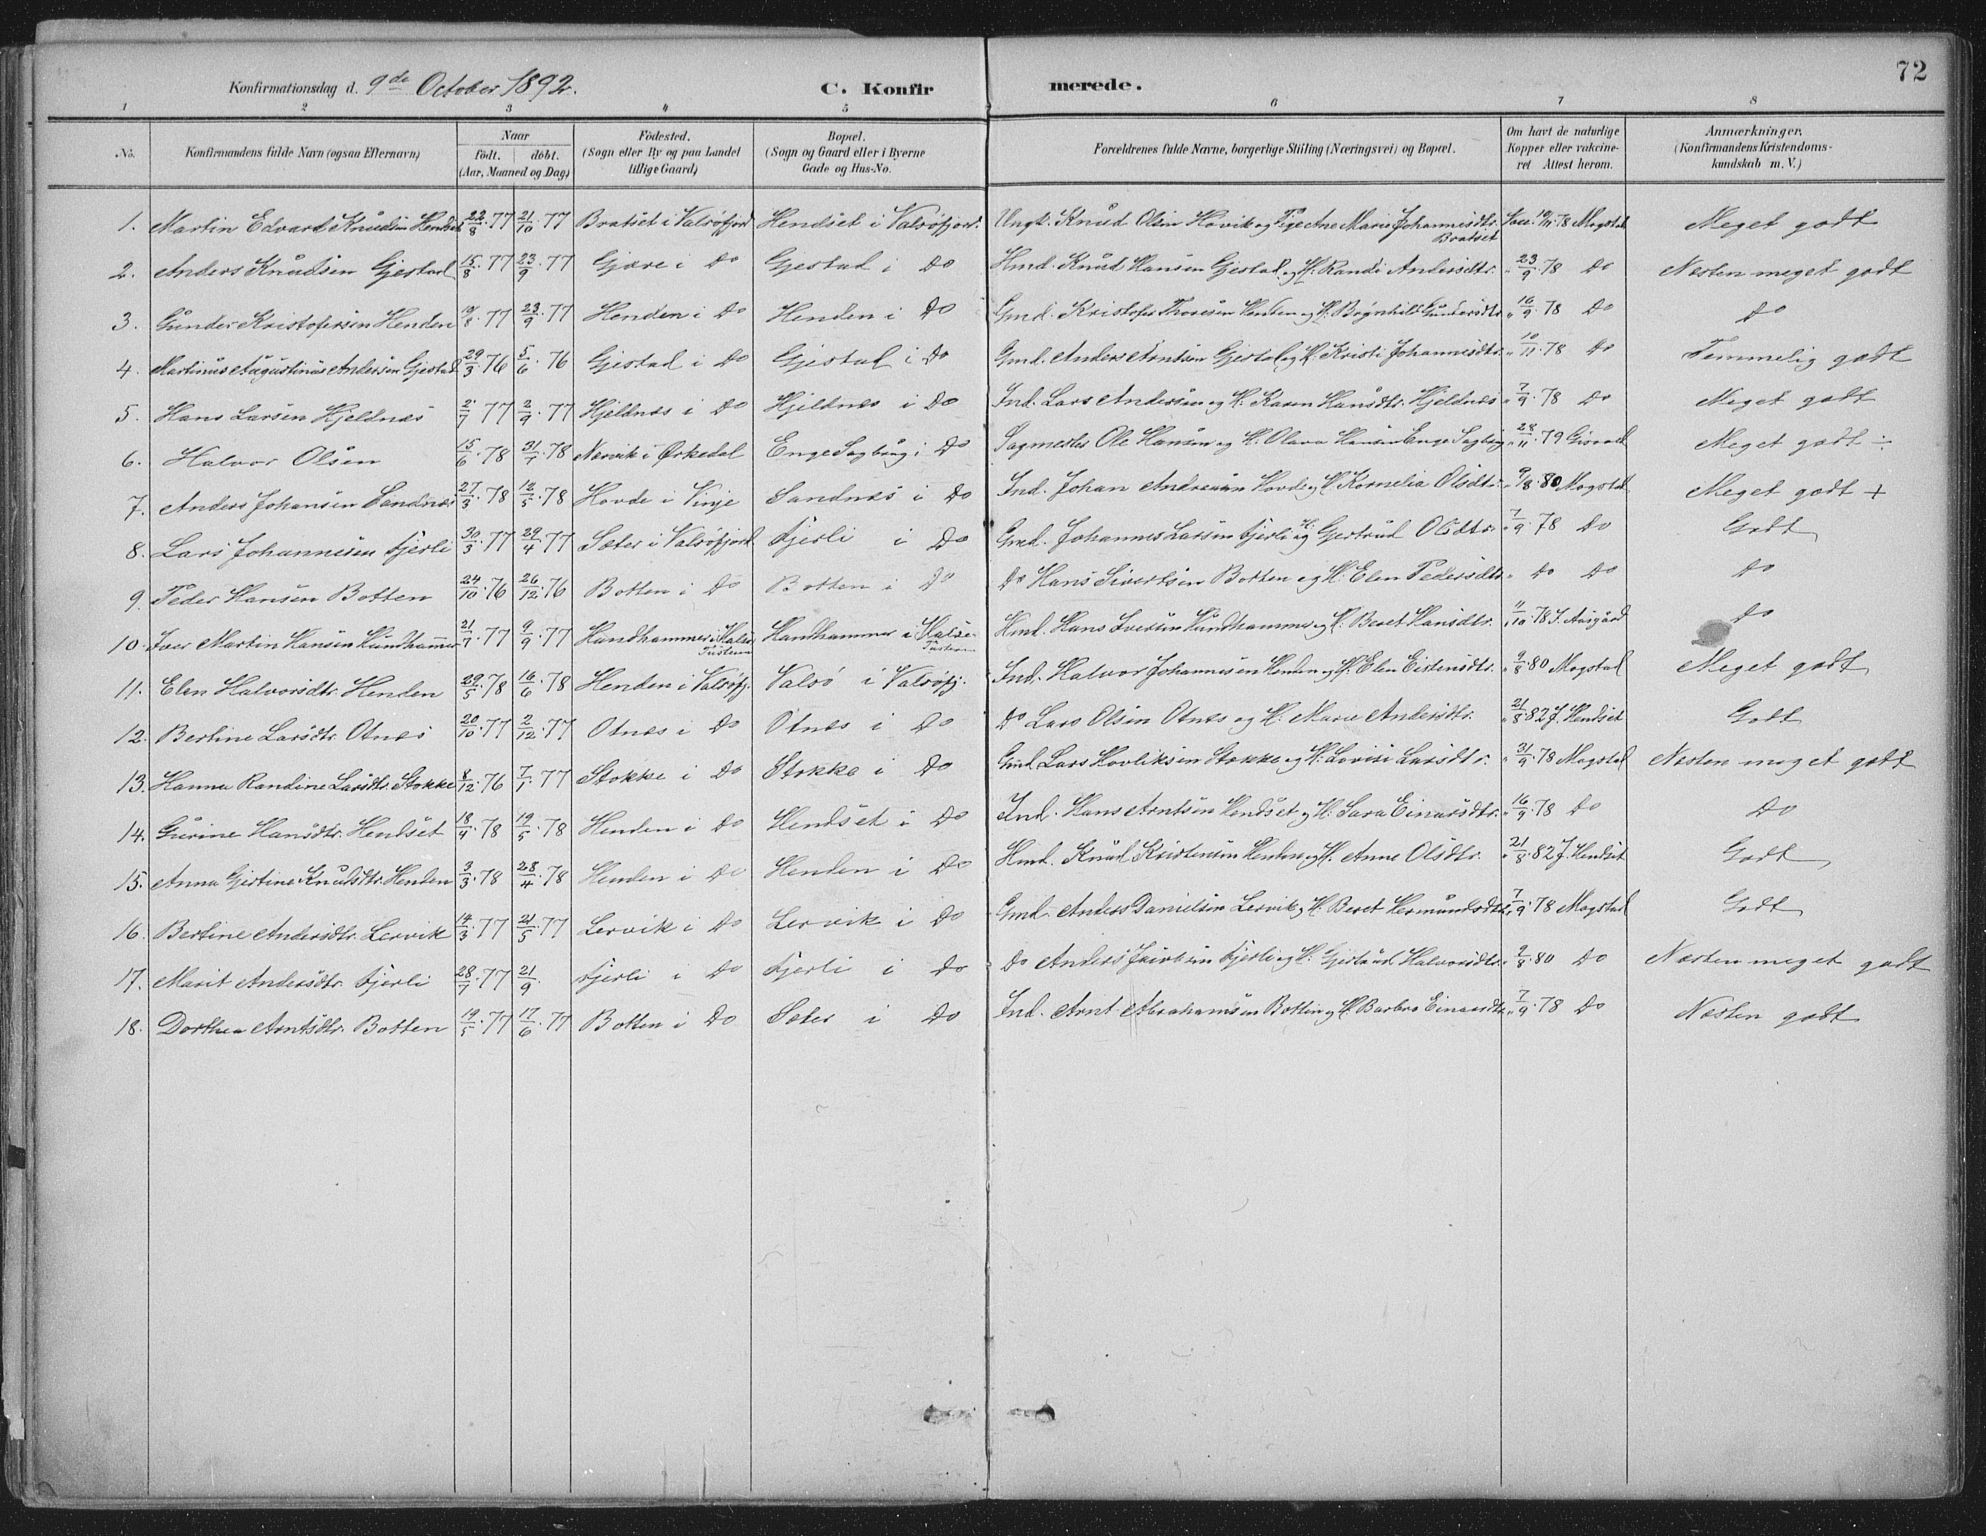 72
Konfirmationsdag d. 9de October 1892. C. Konfir merede.
1 2 3 4 5 6 7 8
No. Konfirmandens fulde Navn (ogsaa Efternavn) Naar født. døbt. (Aar, Maaned og Dag) Fødested. (Sogn eller By og paa Landet tillige Gaard) Bopæl. (Sogn og Gaard eller i Byerne Gade og Hus-No. Forældrenes fulde Navne, borgerlige Stilling (Næringsvei) og Bopæl. Om havt de naturlige Kopper eller vakcineret Attest herom. Anmærkninger. (Konfirmandens Kristendomskundskab m. V.)
1. Martin Edvard Knudsen Hendset 22/8.77 21/10.77 Bratset i Valsøfjord Hendset i Valsøfjord. Ungk. Knud Olsen Hovik og Pige Ane Marie Johannesdtr. Bratset Vac. 10/11 78 Mogstad Meget godt
2. Anders Knudsen Gjestad 15/8.77 23/9.77 Gjøre i Do Gjestad i Do Hmd. Knud Hansen Gjestad og H. Randi Andersdtr. " 23/9.78 Do Næsten meget godt
3. Gunder Kristofersen Henden 19/8.77 23/9.77 Henden i Do Henden i Do Gmd. Kristofer Thoresen Henden og H. Brynhild Gundersdtr. " 16/9.78 Do Do
4. Martinus Augustinus Andersen Gjestad 29/3.76 5/6.76 Gjestad i Do Gjestad i Do Gmd. Anders Arntsen Gjestad og H. Kristi Johannesdtr. " 10/11.78 Do Temmelig godt
5. Hans Larsen Hjeldnes 2/7 77 2/9.77 Hjeldnes i Do Hjeldnes i Do Ind. Lars Andersen og H. Karen Hansdtr. Hjeldnes " 7/9.78 Do Meget godt
6. Halvor Olsen 15/6.78 31/7.78 Nervik i Ørkedal Enge Sagbrug i Do Sagmester Ole Hansen og H. Olava Hansen Enge Sagbrug " 28/11.79 Meget godt ÷
7. Anders Johansen Sandnes 27/3.78 12/5.78 Hovde i Vinje Sandnes i Do Ind. Johan Andreasen Hovde og H. Kornelia Olsdtr. " 9/8.80 Mogstad Meget godt +
8. Lars Johannesen Fjerli 30/3.77 29/4.77 Sæter i Valsøfjord Fjerli i Do Gmd. Johannes Larsen Fjerli og H. Gjertrud Olsdtr. " 7/9 78 Do Godt
9. Peder Hansen Botten 24/10.76 26/12.76 Botten i Do Botten i Do Do Hans Sivertsen Botten og H. Elen Pedersdtr. " Do Do Do
10. Iver Martin Hansen Hundhammer 21/7.77 9/9.77 Hundhammer i Halse Tustern Hundhammer i Halse Tustern Hmd. Hans Iversen Hundhammer og H. Beret Hansdtr. " 11/10 78 J. Aasgård Do
11. Elen Halvorsdtr. Henden 29/5.78 16/6.78 Henden i Valsøfj. Valsø i Valsøfj. Ind. Halvor Johannesen Henden og H. Elen Eistensdtr. " 9/8 80 Mogstad Meget godt
12. Bertine Larsdtr. Otnes 20/10.77 2/12.77 Otnes i Do Otnes i Do Do Lars Olsen Otnes og H. Marie Andersdtr. " 21/8.82 J. Hendset Godt
13. Hanna Randine Larsdtr. Stokke 8/12.76 7/1.77 Stokke i Do Stokke i Do Gmd. Lars Hovliksen Stokke og H. Lovise Larsdtr. " 31/9.78 Mogstad Næsten meget godt
14. Gurine Hansdtr. Hendset 18/4.78 19/5.78 Henden i Do Hendset i Do Ind. Hans Arntsen Hendset og H. Sara Einarsdtr. " 16/9.78 Do Do
15. Anna Gjertine Knudsdtr. Henden 3/3.78 28/4.78 Henden i Do Henden i Do Hmd. Knud Kristensen Henden og H. Anne Olsdtr. " 21/8.82 J. Hendset Godt
16. Bertine Andersdtr. Lervik 14/3.77 21/5.77 Lervik i Do Lervik i Do Gmd. Anders Danielsen Lervik og H. Beret Hermundsdtr. " 7/9.78 Mogstad Godt
17. Marit Andersdtr. Fjerli 28/7.77 21/9. Fjerli i Do Fjerli i Do Do Anders Fjerli og H. Gjertrud Halvorsdtr. " 9/8.80 Do Næsten meget godt
18. Dorthea Arntsdtr. Botten 19/5.77 17/6.77 Botten i Do Sæter i Do Ind. Arnt Abrahamsen Botten og H. Barbro Einarsdtr. " 7/9 78 Do Næsten godt